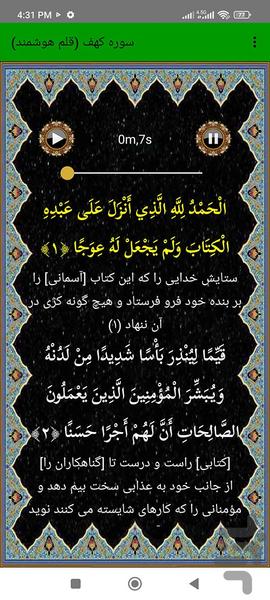 4:31 PM
سوره کهف (قلم هوشمند)
0m,7s
الْحَمْدُ لِلَّهِ الَّذِي أَنْزَلَ عَلَى عَبْدِهِ
الْكِتَابَ وَلَمْ يَجْعَلْ لَهُ عِوَجًا ﴿۱﴾
ستایش خدایی را که این کتاب [آسمانی] را
بر بنده خود فرو فرستاد و هیچ گونه کژی در
آن ننهاد (۱)
قَيِّمًا لِيُنْذِرَ بَأْسًا شَدِيدًا مِنْ لَدُنْهُ
وَيُبَشِّرَ الْمُؤْمِنِينَ الَّذِينَ يَعْمَلُونَ
الصَّالِحَاتِ أَنَّ لَهُمْ أَجْرًا حَسَنًا ﴿۲﴾
[کتابی] راست و درست تا [گناهکاران را]
از جانب خود به عذابی سخت بیم دهد و
مؤمنانی را که کارهای شایسته می کنند نوید